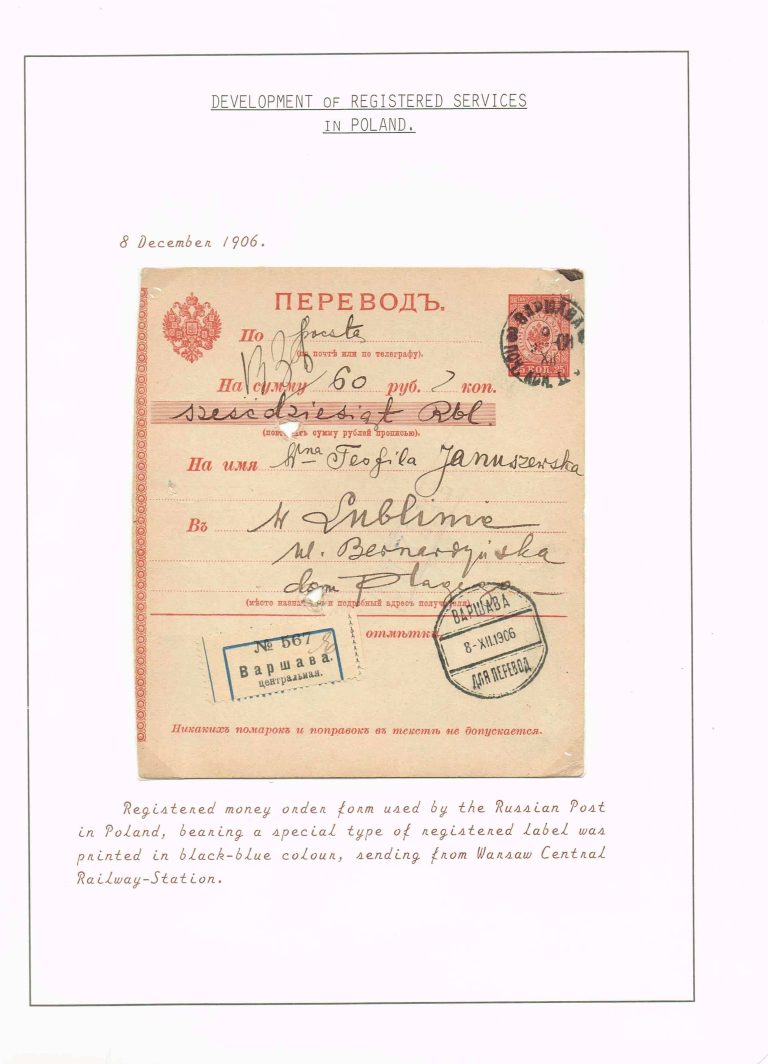 DEVELOPMENT OF REGISTERED SERVICES
IN POLAND.
8 December 1906.
ПЕРЕВОДЪ.
По poczta
(по почтѣ или по телеграфу).
На сумму 60 руб. коп.
KОП. 25
ВАРШАВА
9
XII
sześćdziesiąt Rbl.
(показать сумму рублей прописью).
На имя Wna Teofila Januszewska
Въ w Lublinie
ul. Bernardyńska
dom
(мѣсто назначенія и подробный адресъ получателя).
отмѣтки.
ВАРШАВА
8-XII.1906
ДЛЯ ПЕРЕВОД
№ 567
Варшава.
центральная.
Никакихъ помарокъ и поправокъ въ текстѣ не допускается.
Registered money order form used by the Russian Post
in Poland, bearing a special type of registered label was
printed in black-blue colour, sending from Warsaw Central
Railway-Station.